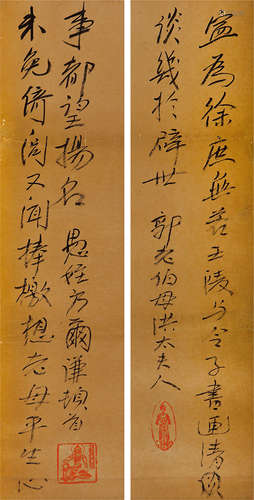 寧為徐庶無若王陵與令子書畫清
談幾於辟世 郭老伯母洪太夫人
未免倚閭又聞捧檄想老母平生心
事都望揚名 愚姪方爾謙頓首